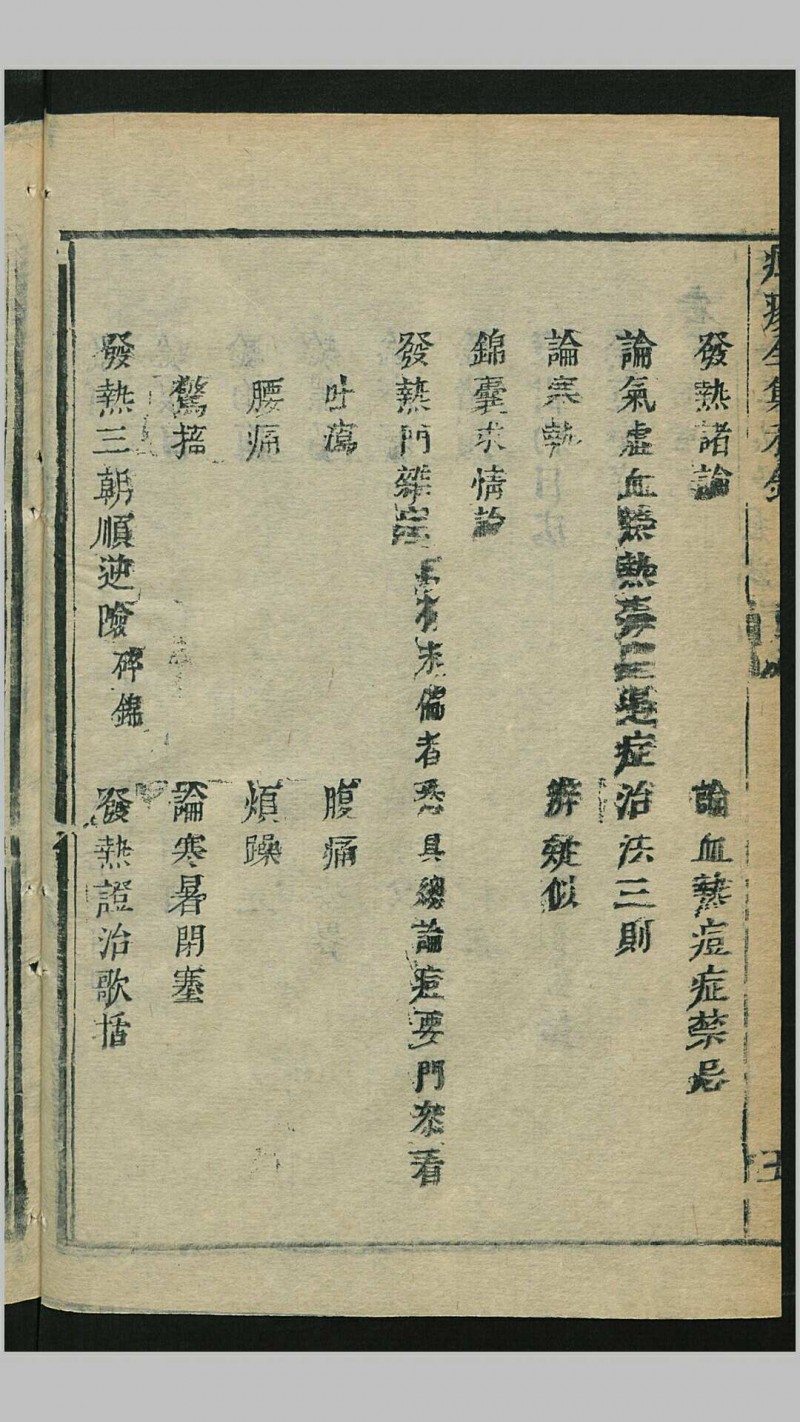 發熱諸論　論血熱痘症禁忌
論氣虛血熱熱毒三患症治法三則
論寒熱　辨疑似
錦囊求情論
發熱門雜症有未備者悉具總論痘要門叅看
吐瀉　腹痛
腰痛　煩躁
驚搐　論寒暑閉塞
發熱三朝順逆險碎錦　發熱證治歌括